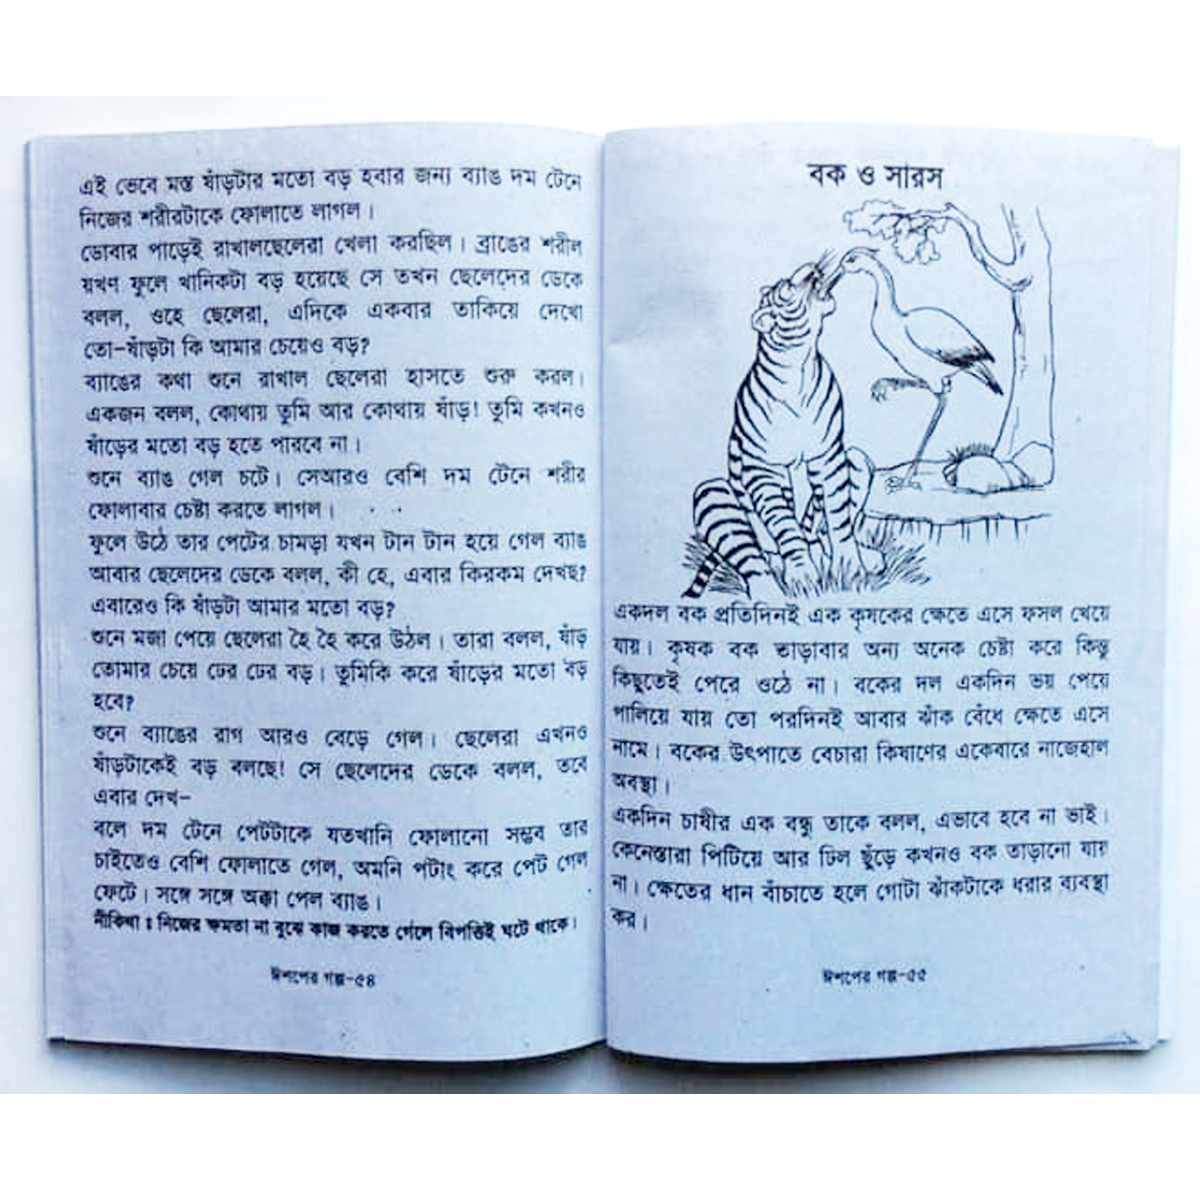 এই ভেবে মস্ত ষাঁড়টার মতো বড় হবার জন্য ব্যাঙ দম টেনে
নিজের শরীরটাকে ফোলাতে লাগল।
ডোবার পাড়েই রাখালছেলেরা খেলা করছিল। ব্রাঙের শরীল
য়খণ ফুলে খানিকটা বড় হয়েছে সে তখন ছেলেদের ডেকে
বলল, ওহে ছেলেরা, এদিকে একবার তাকিয়ে দেখো
তো-ষাঁড়টা কি আমার চেয়েও বড়?
ব্যাঙের কথা শুনে রাখাল ছেলেরা হাসতে শুরু করল।
একজন বলল, কোথায় তুমি আর কোথায় ষাঁড়! তুমি কখনও
ষাঁড়ের মতো বড় হতে পারবে না।
শুনে ব্যাঙ গেল চটে। সেআরও বেশি দম টেনে শরীর
ফোলাবার চেষ্টা করতে লাগল।
ফুলে উঠে তার পেটের চামড়া যখন টান টান হয়ে গেল ব্যাঙ
আবার ছেলেদের ডেকে বলল, কী হে, এবার কিরকম দেখছ?
এবারেও কি ষাঁড়টা আমার মতো বড়?
শুনে মজা পেয়ে ছেলেরা হৈ হৈ করে উঠল। তারা বলল, ষাঁড়
তোমার চেয়ে ঢের ঢের বড়। তুমিকি করে ষাঁড়ের মতো বড়
হবে?
শুনে ব্যাঙের রাগ আরও বেড়ে গেল। ছেলেরা এখনও
ষাঁড়টাকেই বড় বলছে! সে ছেলেদের ডেকে বলল, তবে
এবার দেখ-
বলে দম টেনে পেটটাকে যতখানি ফোলানো সম্ভব তার
চাইতেও বেশি ফোলাতে গেল, অমনি পটাং করে পেট গেল
ফেটে। সঙ্গে সঙ্গে অক্কা পেল ব্যাঙ।
নীকিথা ঃ নিজের ক্ষমতা না বুঝে কাজ করতে গেলে বিপত্তিই ঘটে থাকে।
ঈশপের গল্প-৫৪
বক ও সারস
একদল বক প্রতিদিনই এক কৃষকের ক্ষেতে এসে ফসল খেয়ে
যায়। কৃষক বক তাড়াবার অন্য অনেক চেষ্টা করে কিন্তু
কিছুতেই পেরে ওঠে না। বকের দল একদিন ভয় পেয়ে
পালিয়ে যায় তো পরদিনই আবার ঝাঁক বেঁধে ক্ষেতে এসে
নামে। বকের উৎপাতে বেচারা কিষাণের একেবারে নাজেহাল
অবস্থা।
একদিন চাষীর এক বন্ধু তাকে বলল, এভাবে হবে না ভাই।
কেনেস্তারা পিটিয়ে আর ঢিল ছুঁড়ে কখনও বক তাড়ানো যায়
না। ক্ষেতের ধান বাঁচাতে হলে গোটা ঝাঁকটাকে ধরার ব্যবস্থা
কর।
ঈশপের গল্প-৫৫